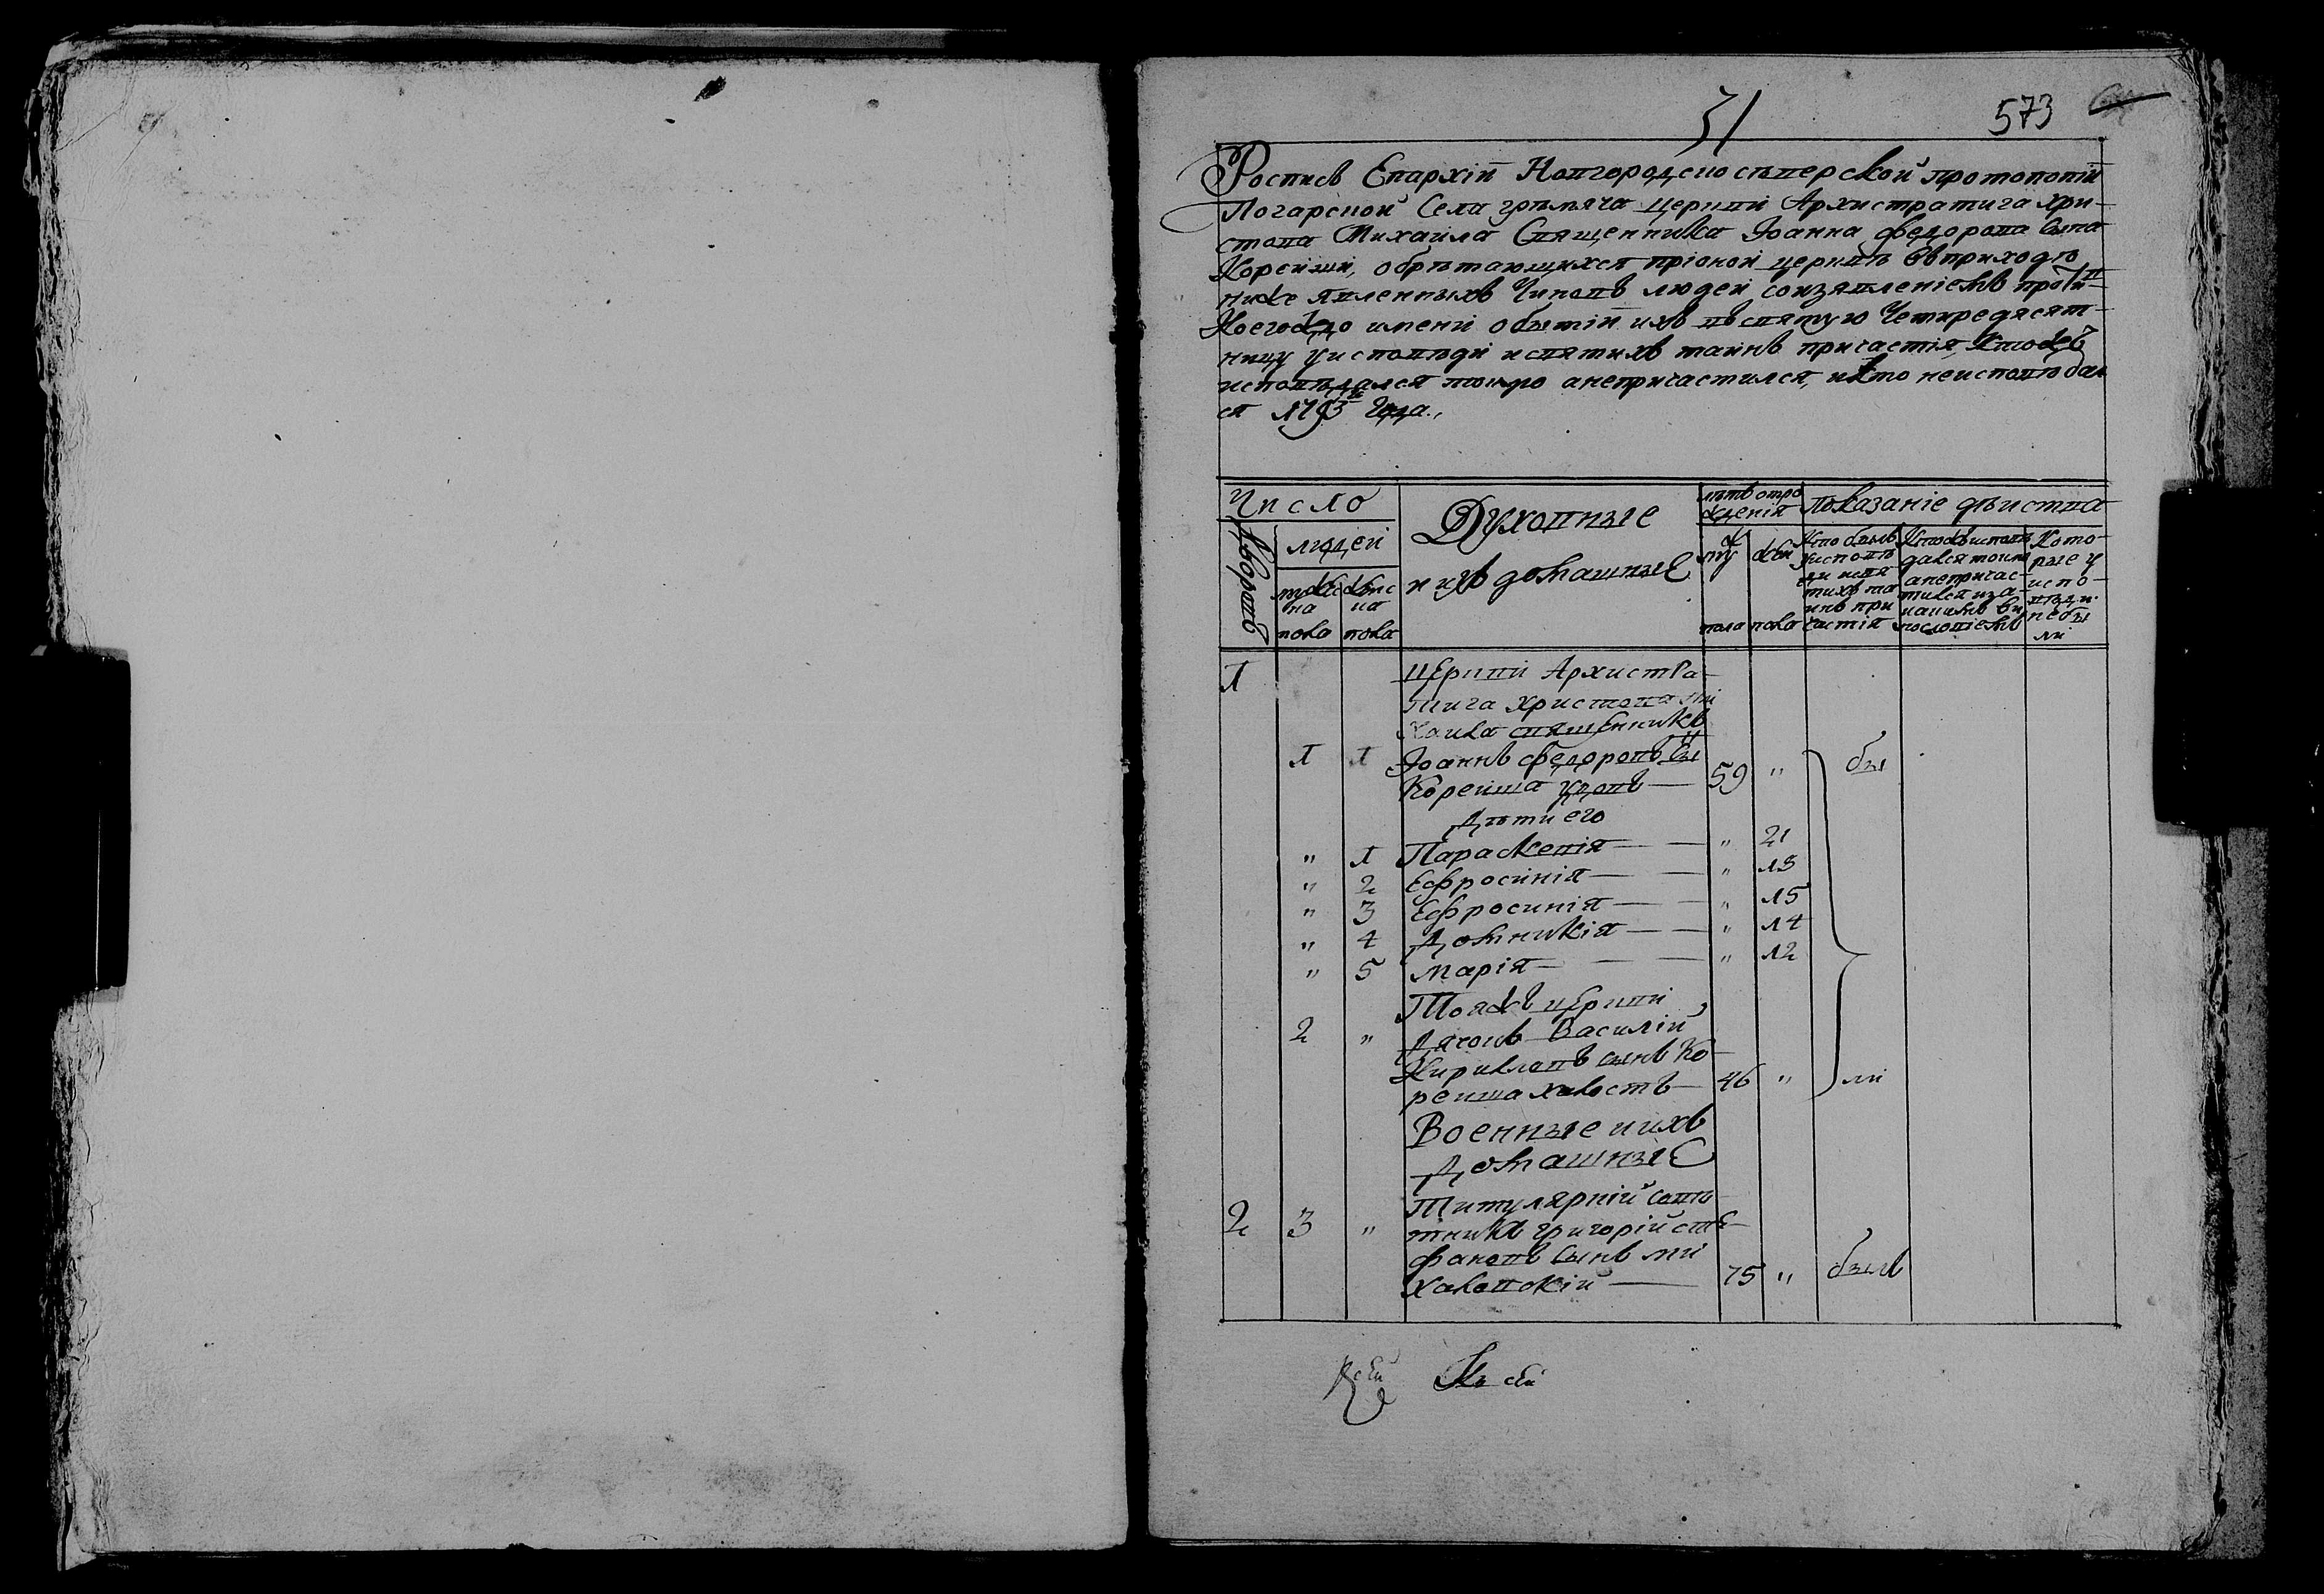 31
573
Роспись Епархіи Новгородсно сѣверской протопопіи
Погарсной Села грѣмяча церкви Архистратига хри-
стова Михаила Священника Іоанна федорова сына
Корейши, обрѣтающихся прионой церквѣ въприходѣ
ниже явленныхъ Чиновъ людей соизявленіемъ проти-
Коегождо имени обытіи ихъ въсвятую Четиредесят-
ницу уисповѣди исвятихъ таинъ причастія, Ктожъ
исповѣдался токмо анепричастился, икто неисповѣдал
ся года.
Число
Дворовъ
людей
мужеска пола
женска пола
Духовные
и ихъ домашные
лѣтъ отрождения
му пола
жен пола
Показаніе дѣиства
Кто былъ
уисповѣ
ди исвя
тихъ та
инъ при
частія
Ктожъисповѣ
дался токмо
анепричас-
тился иза-
какимъ ви
нословіемъ
Кото-
рые у
испо-
вѣди
небы
ли
1
церкви Архистра-
тига христова Ми
хаила священникъ
1 1 Іоаннъ федоровъ сы
Корейша удовъ — 59 " бы
Дѣти его
" 1 Параскевія — — " 21
" 2 Ефросинія — — " 18
" 3 Ефросинія — — " 15
" 4 Домникія — — " 14
" 5 Марія — — " 12
Тояжъ церкви
2 " Дячокъ Василій
Кириловъ сынъ Ко-
рейша холостъ — 46 " ли
Военные иихъ
Домашные
Титулярній совѣ
2 3 " тникъ григорій сте-
фановъ сынъ ми
халовскій — 75 " былъ